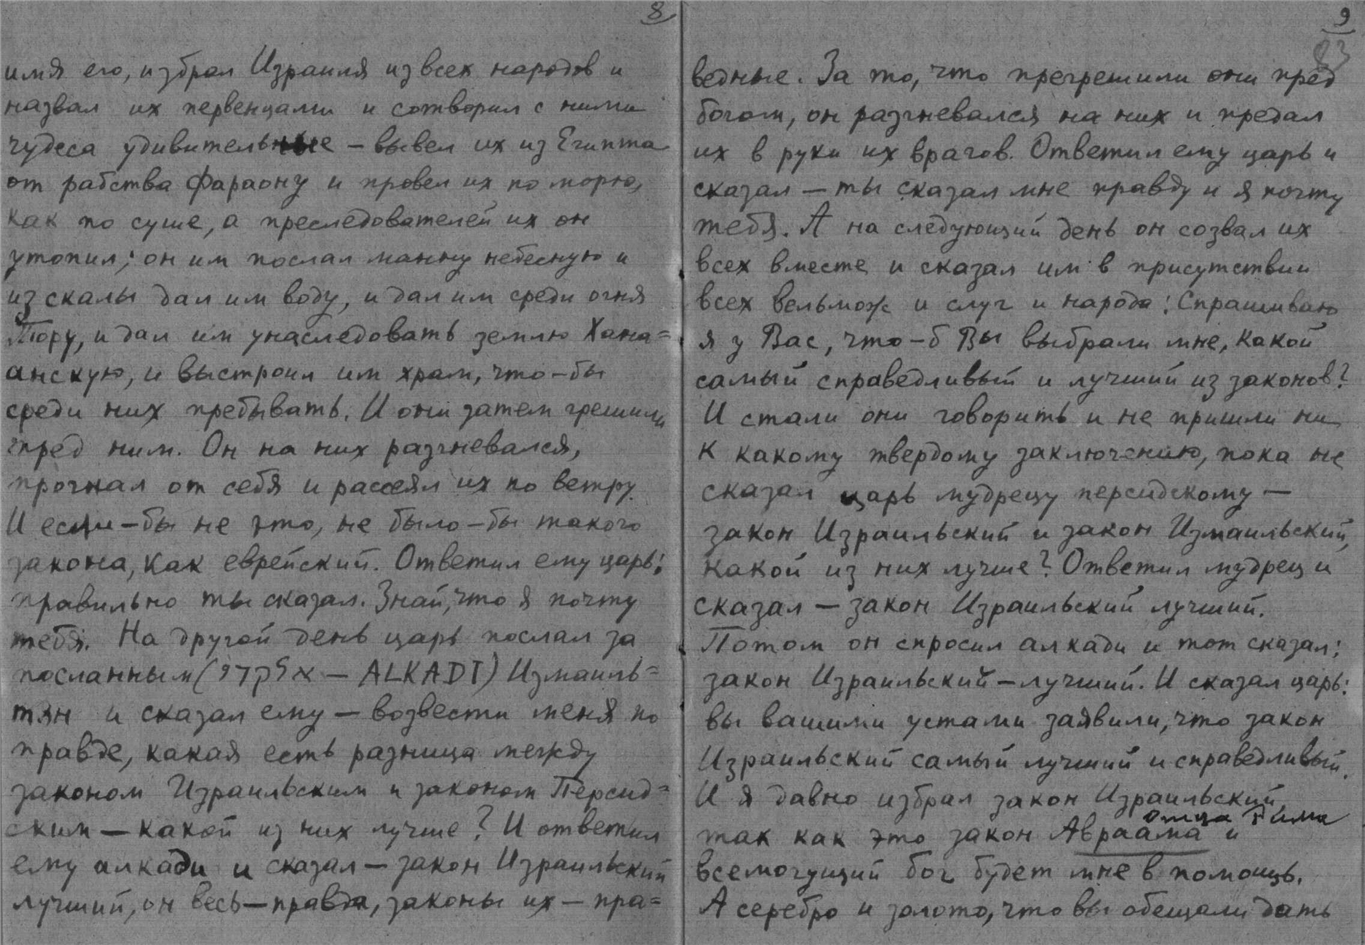 8
имя его, избрал Израиля из всех народов и
назвал их первенцами и сотворил с ними
чудеса удивительные – вывел их из Египта
от рабства фараону и провел их по морю,
как по суше, а преследователей их он
утопил; он им послал манну небесную и
из скалы дал им воду, и дал им среди огня
Тору, и дал им унаследовать землю Хана=
анскую, и выстроил им храм, что-бы
среди них пребывать. И они затем грешили
пред ним. Он на них разгневался,
прогнал от себя и рассеял их по ветру.
И если-бы не это, не было-бы такого
закона, как еврейский. Ответил ему царь:
правильно ты сказал. Знай, что я почту
тебя. На другой день царь послал за
посланным ( – ALKADI) Измаиль=
тян и сказал ему – возвести меня по
правде, какая есть разница между
законом Израильским и законом Персид=
ским – какой из них лучше? И ответил
ему алкади и сказал – закон Израильский
лучший, он весь – правда, законы их – пра=
9
93
ведные. За то, что прегрешили они пред
богом, он разгневался на них и предал
их в руки их врагов. Ответил ему царь и
сказал – ты сказал мне правду и я почту
тебя. А на следующий день он созвал их
всех вместе и сказал им в присутствии
всех вельмож и слуг и народа: Спрашиваю
я у Вас, что-б Вы выбрали мне, какой
самый справедливый и лучший из законов?
И стали они говорить и не пришли ни
к какому твердому заключению, пока не
сказал царь мудрецу персидскому –
закон Израильский и закон Измаильский,
какой из них лучше? Ответил мудрец и
сказал – закон Израильский лучший.
Потом он спросил алкади и тот сказал:
закон Израильский – лучший. И сказал царь:
вы вашими устами заявили, что закон
Израильский самый лучший и справедливый.
И я давно избрал закон Израильский,
так как это закон Авраама отца и
всемогущий бог будет мне в помощь.
А серебро и золото, что вы обещали дать